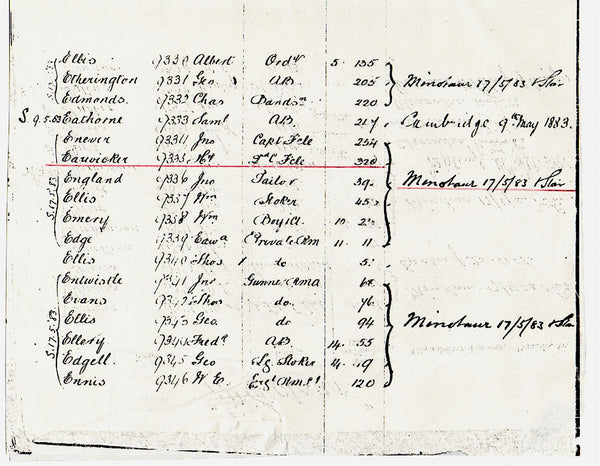 Ellis 9330 Albert Ordy 5 155
Etherington 9331 Geo. AB 205 Minotaur 17/5/83 & Star
Edmonds. 9332 Chas Bandsn 220
S. 9.5.83 Eathorne 9333 Saml AB. 217 Cambridge 9th May 1883.
Enever 9334 Jno Capt Fcle 254
Earwicker 9335 Hy Fcle 320
England 9336 Jno Tailor 39 Minotaur 17/5/83 & Star
S.17.5.83 Ellis 9337 Wm Stoker 45
Emery 9338 Wm Boy 10 2
Edge 9339 Edwd Private RM 11. 11
Ellis 9340 Thos do 5
Entwistle 9341 Jno Gunner RMA
Evans 9342 Thos do. 76
Ellis 9343 Geo. do 94 Minotaur 17/5/83 & Star
S.17.5.83 Ellery 9344 Fredk AB 14. 55
Edgell. 9345 Geo Lg. Stoker 14. 19
Ennis 9346 W E. 120